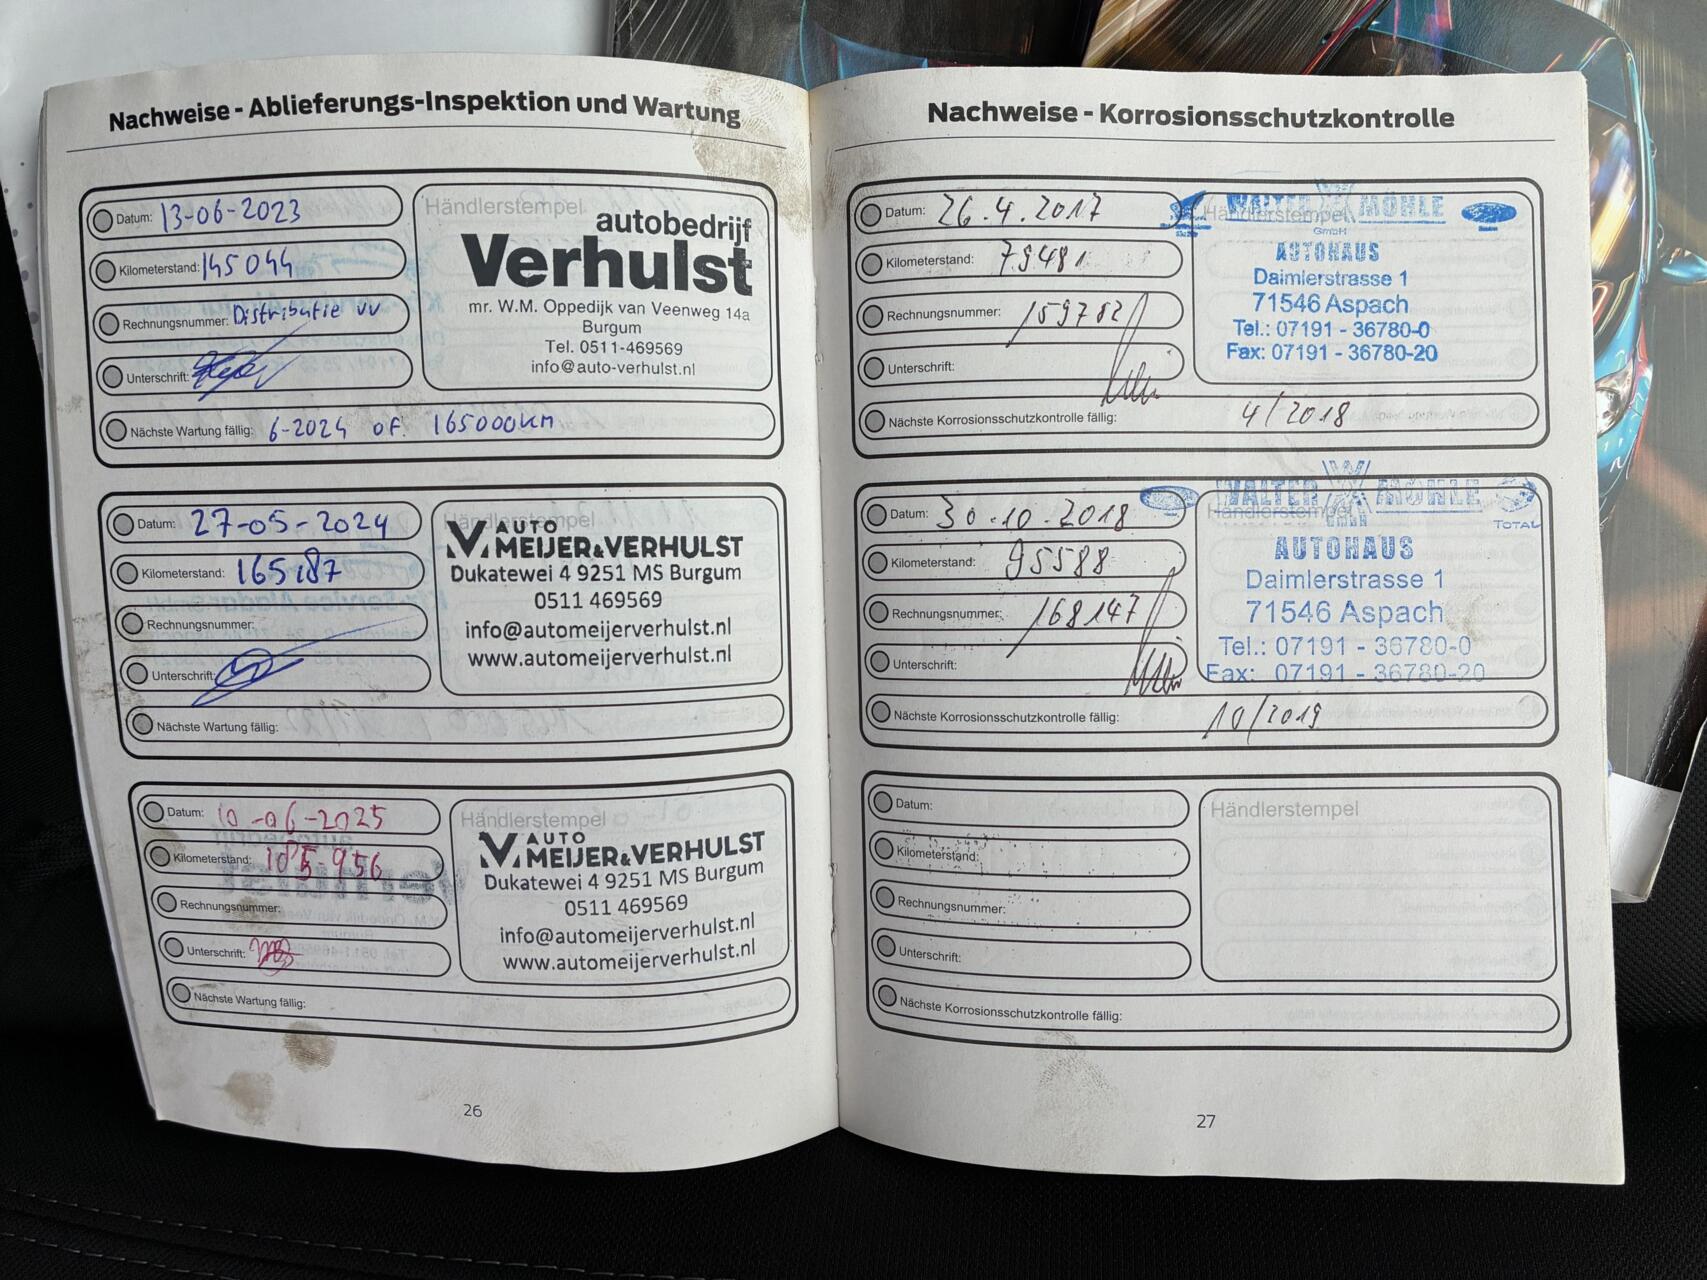 Nachweise - Ablieferungs-Inspektion und Wartung
Datum: 13-06-2023
Kilometerstand: 145044
Rechnungsnummer: Distributie vv
Unterschrift:
Nächste Wartung fällig: 6-2024 of 165000km
Händlerstempel
autobedrijf
Verhulst
mr. W.M. Oppedijk van Veenweg 14a
Burgum
Tel. 0511-469569
info@auto-verhulst.nl
Datum: 27-05-2024
Kilometerstand: 165187
Rechnungsnummer:
Unterschrift:
Nächste Wartung fällig:
Händlerstempel
AUTO
MEIJER&VERHULST
Dukatewei 4 9251 MS Burgum
0511 469569
info@automeijerverhulst.nl
www.automeijerverhulst.nl
Datum: 10-06-2025
Kilometerstand: 185-956
Rechnungsnummer:
Unterschrift:
Nächste Wartung fällig:
Händlerstempel
AUTO
MEIJER&VERHULST
Dukatewei 4 9251 MS Burgum
0511 469569
info@automeijerverhulst.nl
www.automeijerverhulst.nl
26
Nachweise - Korrosionsschutzkontrolle
Datum: 26.4.2017
Kilometerstand: 79481
Rechnungsnummer: 159782
Unterschrift:
Nächste Korrosionsschutzkontrolle fällig: 4/2018
Händlerstempel
WALTER MÖHLE
GmbH
AUTOHAUS
Daimlerstrasse 1
71546 Aspach
Tel.: 07191 - 36780-0
Fax: 07191 - 36780-20
Datum: 30.10.2018
Kilometerstand: 95588
Rechnungsnummer: 168147
Unterschrift:
Nächste Korrosionsschutzkontrolle fällig: 10/2019
Händlerstempel
WALTER MÖHLE
TOTAL
AUTOHAUS
Daimlerstrasse 1
71546 Aspach
Tel.: 07191 - 36780-0
Fax: 07191 - 36780-20
Datum:
Kilometerstand:
Rechnungsnummer:
Unterschrift:
Nächste Korrosionsschutzkontrolle fällig:
Händlerstempel
27